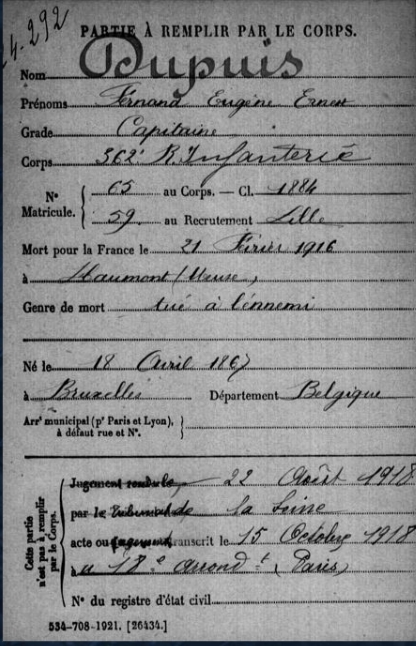 24-292
PARTIE À REMPLIR PAR LE CORPS.
Nom Dupuis
Prénoms Fernand Eugène Ernest
Grade Capitaine
Corps 362e R. Infanterie
N° Matricule. { 65 au Corps. — Cl. 1884
59 au Recrutement Lille
Mort pour la France le 21 Février 1916
à Haumont (Meuse)
Genre de mort tué à l'ennemi
Né le 18 Avril 1867
à Bruxelles Département Belgique
Arrt municipal (pr Paris et Lyon), à défaut rue et N°. }
Cette partie n'est pas à remplir par le Corps.
Jugement rendu le 22 Août 1918
par le Tribunal de la Seine
acte ou jugement transcrit le 15 Octobre 1918
au 18e arrondt (Paris)
N° du registre d'état civil
534-708-1921. [26434.]